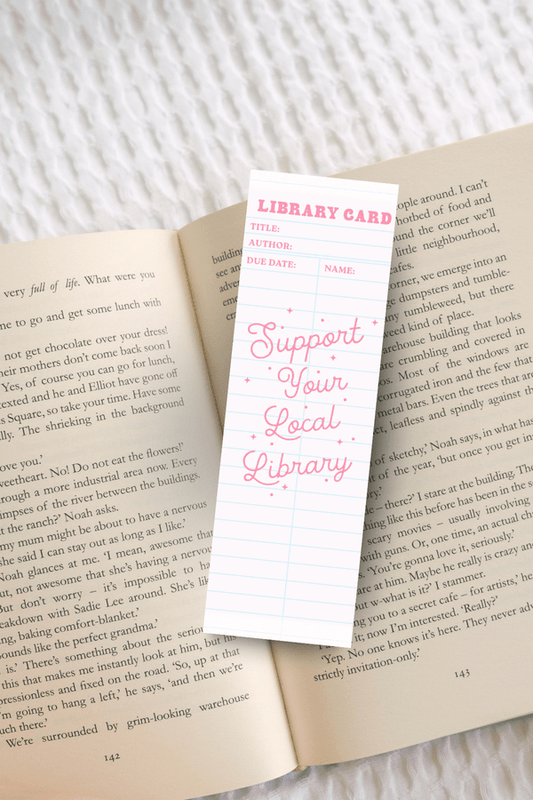 very full of life. What were you
me to go and get some lunch with
not get chocolate over your dress!
heir mothers don't come back soon I
Yes, of course you can go for lunch,
texted and he and Elliot have gone off
s Square, so take your time. Have some
lly. The shrieking in the background
ove you.'
weetheart. No! Do not eat the flowers!'
rough a more industrial area now. Every
impses of the river between the buildings.
t the ranch?' Noah asks.
my mum might be about to have a nervous
she said I can stay out as long as I like.'
Noah glances at me. 'I mean, awesome tha
ut, not awesome that she's having a nervou
But don't worry – it's impossible to ha
eakdown with Sadie Lee around. She's lik
ng, baking comfort-blanket.'
ounds like the perfect grandma.'
is.' There's something about the serio
this that makes me instantly look at him, but hi
pressionless and fixed on the road. 'So, up at that
m going to hang a left,' he says, 'and then we're
uch there.'
We're surrounded by grim-looking warehouse
142
LIBRARY CARD
TITLE:
AUTHOR:
DUE DATE: NAME:
Support
Your
Local
Library
building
see an
adve
eme
cr
ople around. I can't
hotbed of food and
und the corner we'll
little neighbourhood,
afes.
orner, we emerge into an
ge dumpsters and tumble-
ny tumbleweed, but there
eed kind of place.
arehouse building that looks
are crumbling and covered in
os. Most of the windows are
corrugated iron and the few that
metal bars. Even the trees that are
et, leafless and spindly against the
of sketchy,' Noah says, in what has
t of the year, 'but once you get in
y.'
– there?' I stare at the building. The
thing like this before has been in the s
scary movies – usually involving
with guns. Or, one time, an actual ch
'You're gonna love it, seriously.'
are at him. Maybe he really is crazy an
But w-what is it?' I stammer.
ng you to a secret cafe – for artists,' he
t, now I'm interested. 'Really?'
'Yep. No one knows it's here. They never adv
strictly invitation-only.'
143